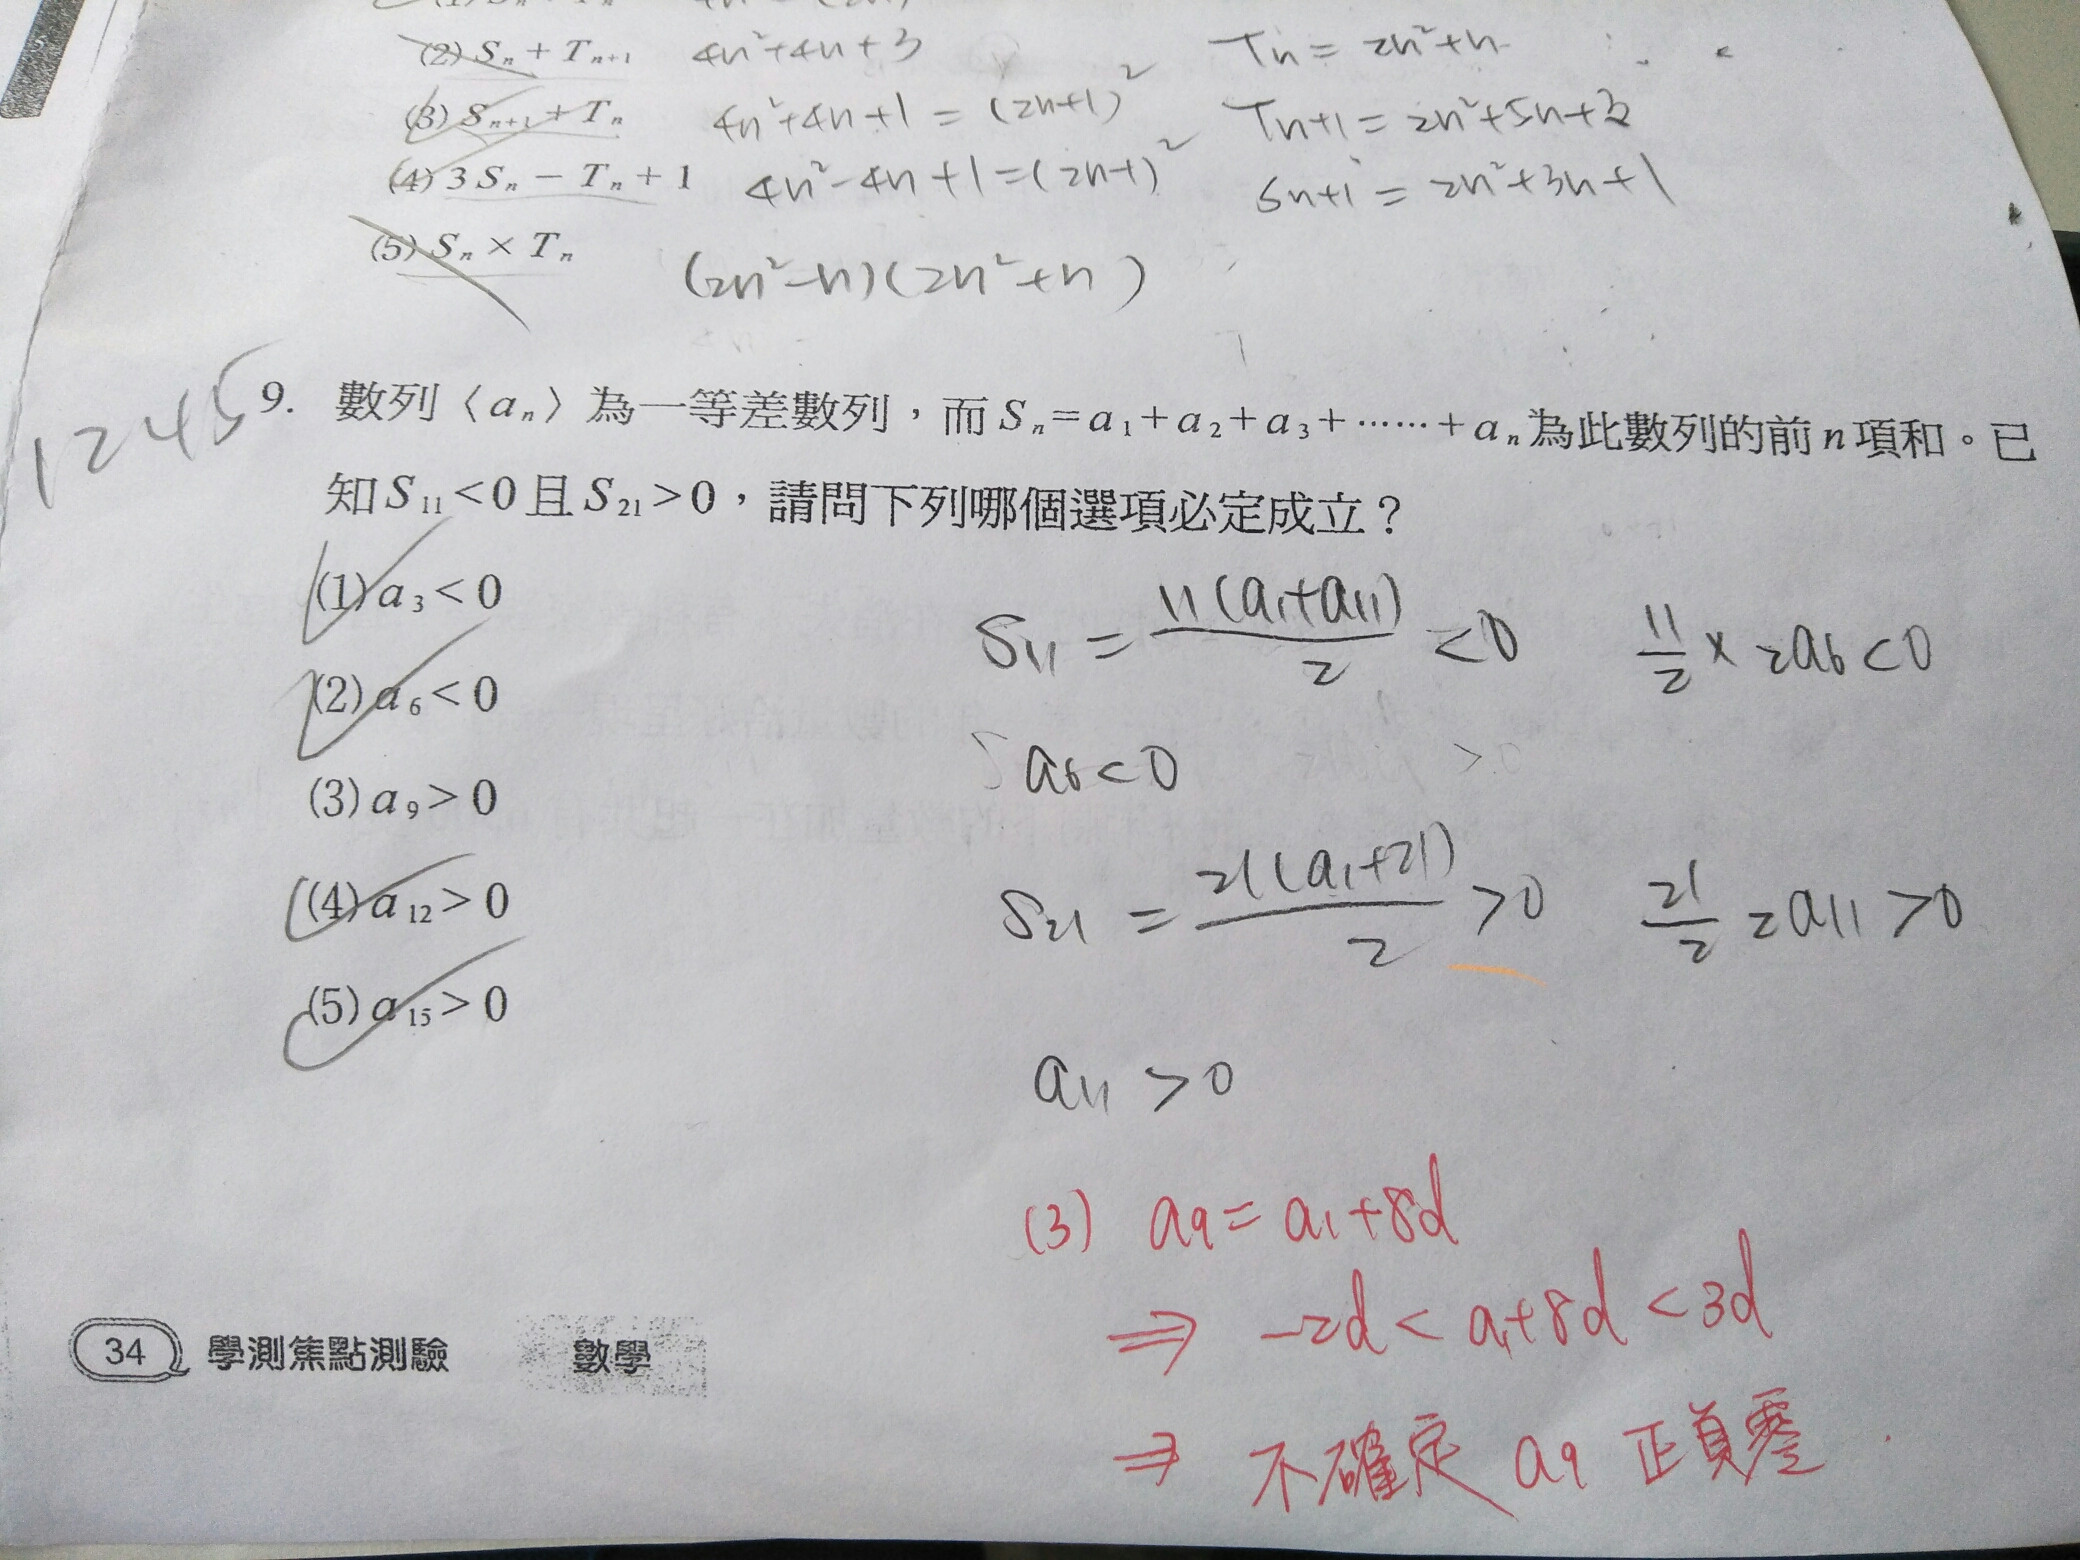 (2) Sₙ + Tₙ₊₁ 4n²+4n+3 Tn = 2n²+n
(3) Sₙ₊₁ + Tₙ 4n²+4n+1 = (2n+1)² Tn+1 = 2n²+5n+3
(4) 3Sₙ − Tₙ + 1 4n²-4n+1=(2n-1)² Sn+1 = 2n²+3n+1
(5) Sₙ × Tₙ (2n²-n)(2n²+n)
1245
9. 數列〈aₙ〉為一等差數列，而Sₙ=a₁+a₂+a₃+⋯⋯+aₙ為此數列的前n項和。已
知S₁₁<0且S₂₁>0，請問下列哪個選項必定成立？
(1) a₃<0
(2) a₆<0
(3) a₉>0
(4) a₁₂>0
(5) a₁₅>0
S11 = 11(a1+a11)/2 <0 11/2 × 2a6<0
a6<0
S21 = 21(a1+21)/2 >0 21/2 2a11>0
a11 >0
(3) a9 = a1+8d
⇒ -2d < a1+8d < 3d
⇒ 不確定 a9 正負零
34 學測焦點測驗 數學